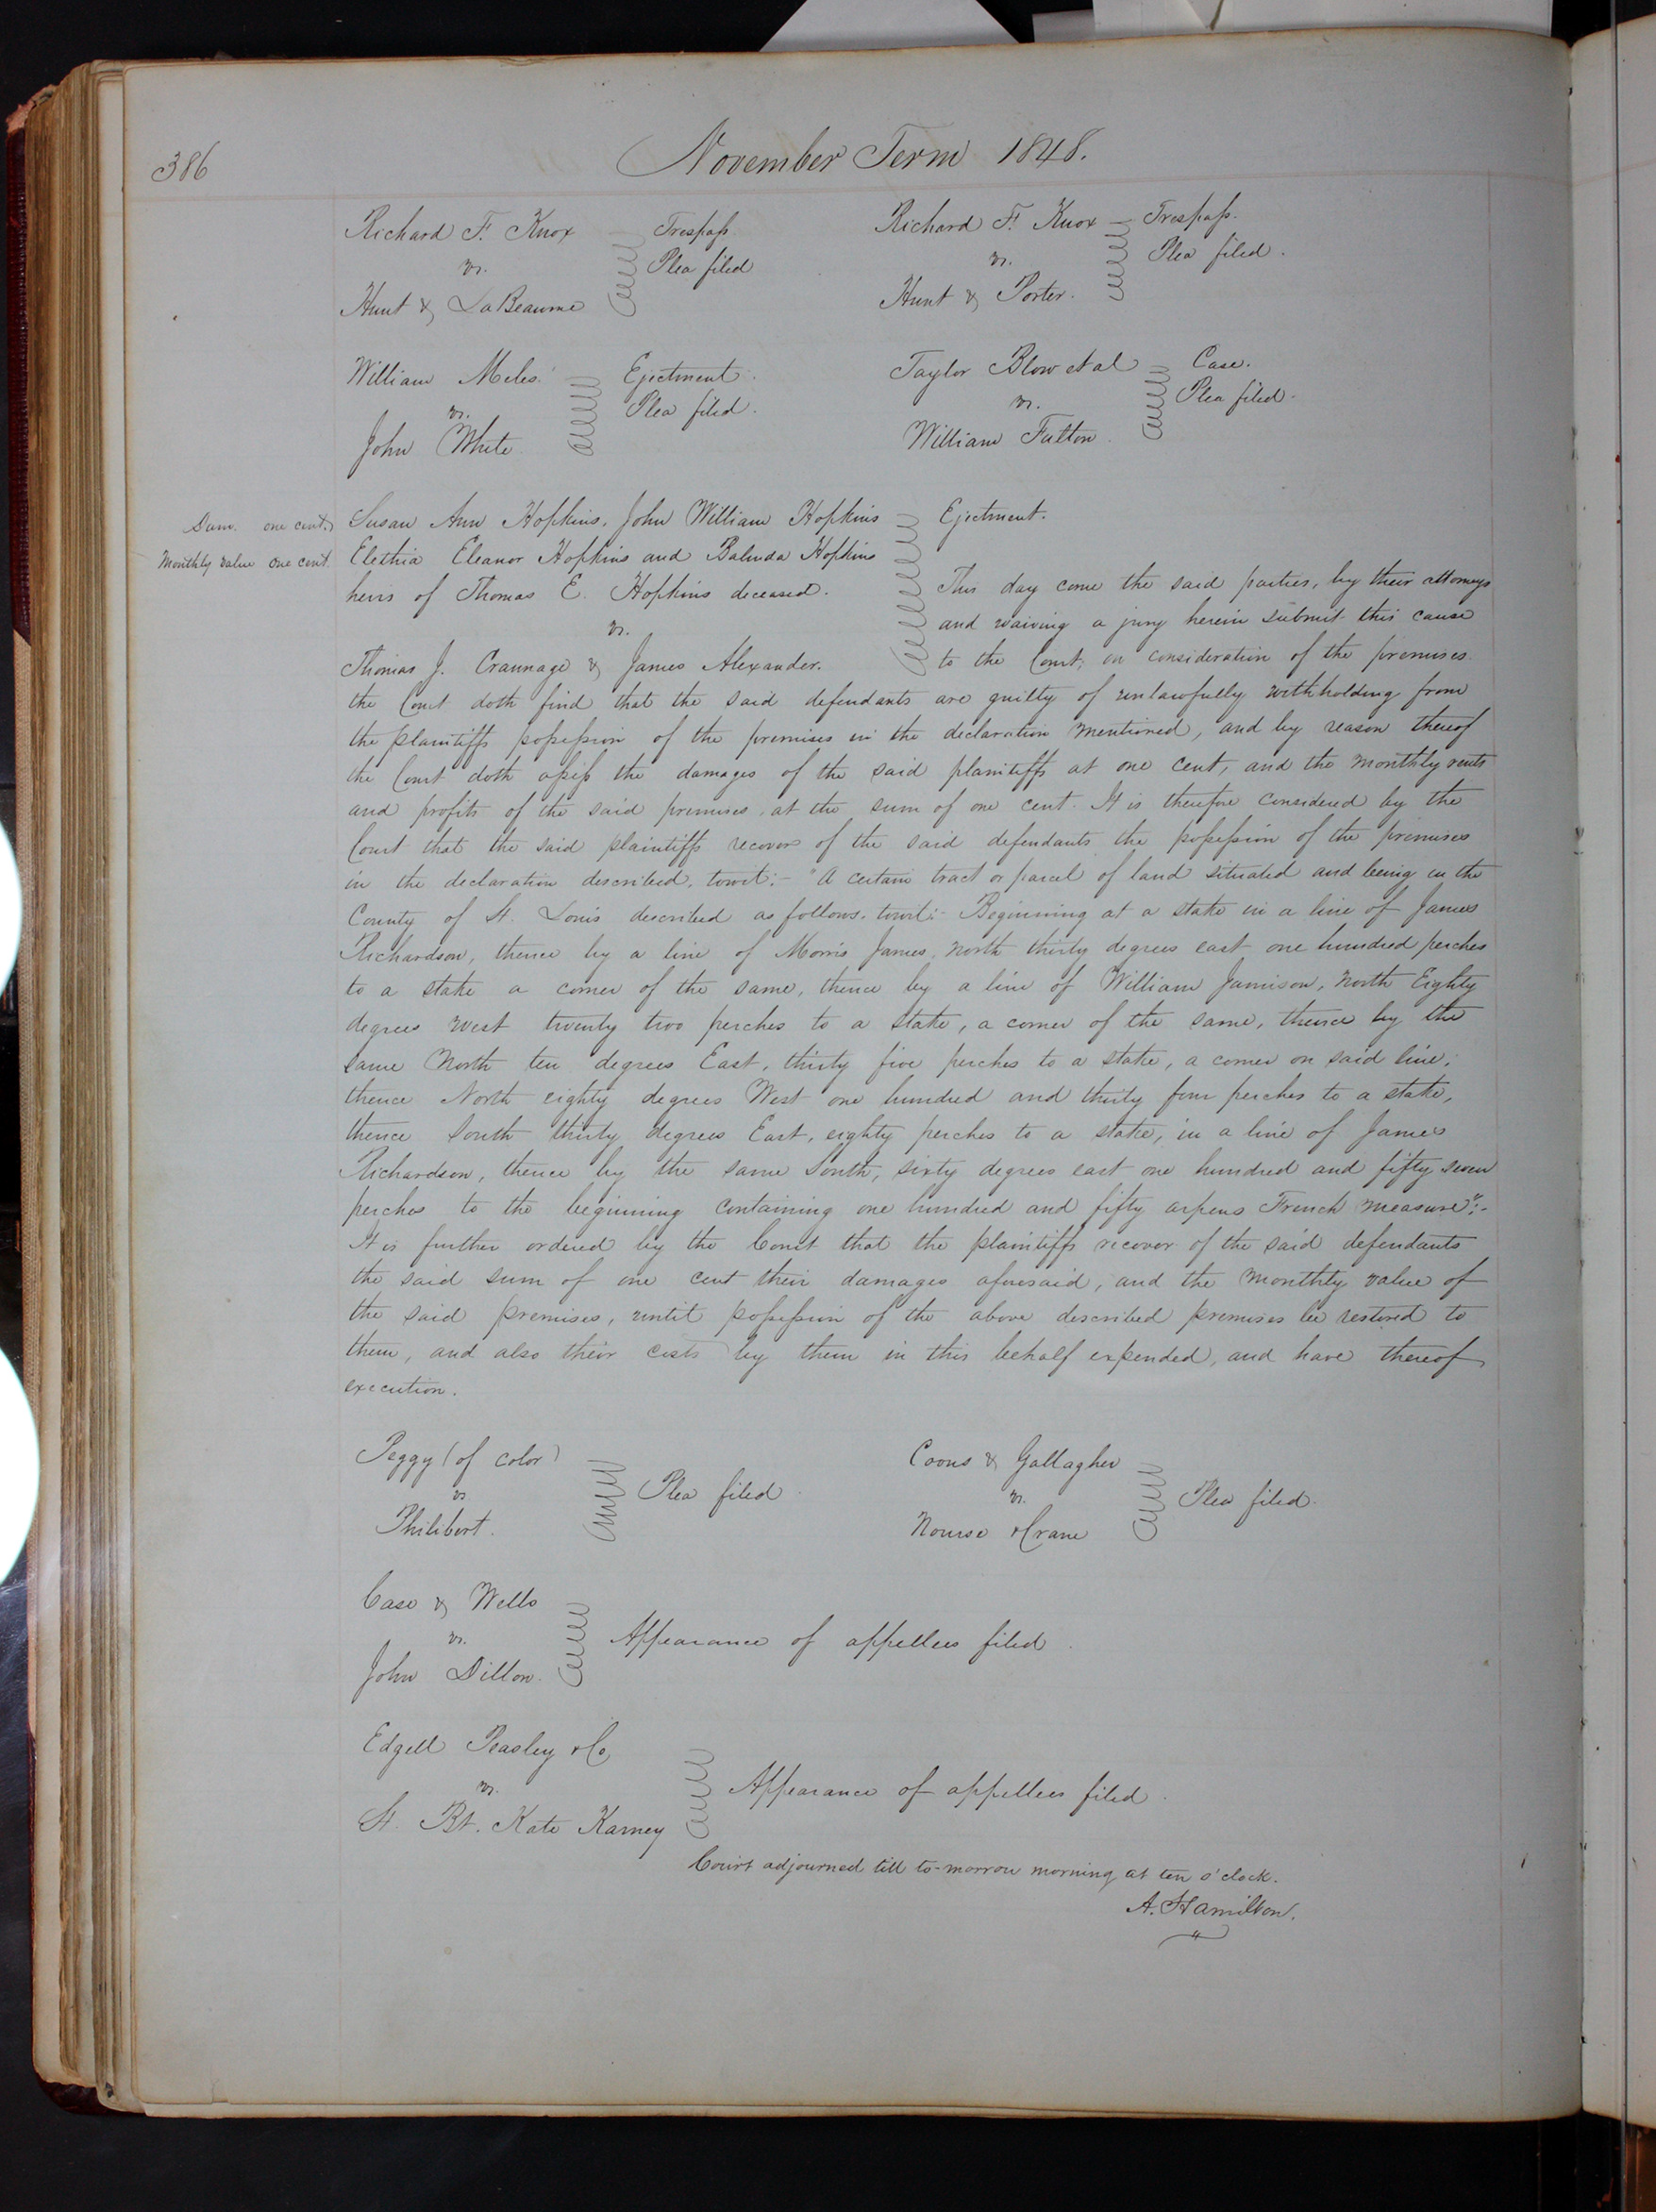 386
November Term 1848.
Richard F. Knox
vs.
Hunt & LaBeaume
Trespass
Plea filed
Richard F. Knox
vs.
Hunt & Porter.
Trespass.
Plea filed.
William Meles.
vs.
John White
Ejectment.
Plea filed.
Taylor Blow et al
vs.
William Fulton.
Case.
Plea filed.
Dam. one cent.
Monthly value one cent.
Susan Ann Hopkins, John William Hopkins
Elethia Eleanor Hopkins and Balinda Hopkins
heirs of Thomas E. Hopkins deceased.
vs.
Thomas J. Crannage & James Alexander.
Ejectment.
This day come the said parties, by their attorneys
and waiving a jury herein submit this cause
to the Court; on consideration of the premises
the Court doth find that the said defendants are guilty of unlawfully withholding from
the plaintiffs possession of the premises in the declaration mentioned, and by reason thereof
the Court doth assess the damages of the said plaintiffs at one cent, and the monthly rents
and profits of the said premises, at the sum of one cent. It is therefore considered by the
Court that the said plaintiffs recover of the said defendants the possession of the premises
in the declaration described, towit:- "A certain tract or parcel of land situated and being in the
County of St. Louis described as follows, towit:- Beginning at a stake in a line of James
Richardson, thence by a line of Morris James, North thirty degrees east one hundred perches
to a stake a corner of the same, thence by a line of William Jamison, North Eighty
degrees West twenty two perches to a stake, a corner of the same, thence by the
same North ten degrees East, thirty five perches to a stake, a corner on said line;
thence North eighty degrees West one hundred and thirty four perches to a stake,
thence South thirty degrees East, eighty perches to a stake, in a line of James
Richardson, thence by the same South, sixty degrees east one hundred and fifty seven
perches to the beginning containing one hundred and fifty arpens French measure":-
It is further ordered by the Court that the plaintiffs recover of the said defendants
the said sum of one cent their damages aforesaid, and the monthly value of
the said premises, until possession of the above described premises be restored to
them, and also their costs by them in this behalf expended, and have thereof
execution.
Peggy (of color)
vs
Philibert.
Plea filed.
Coons & Gallagher
vs.
Nourse & Crane
Plea filed.
Case & Wells
vs.
John Dillon.
Appearance of appellees filed.
Edgell Peasley & Co
vs.
St. Bt. Kate Karney
Appearance of appellees filed.
Court adjourned till to-morrow morning at ten o'clock.
A. Hamilton.